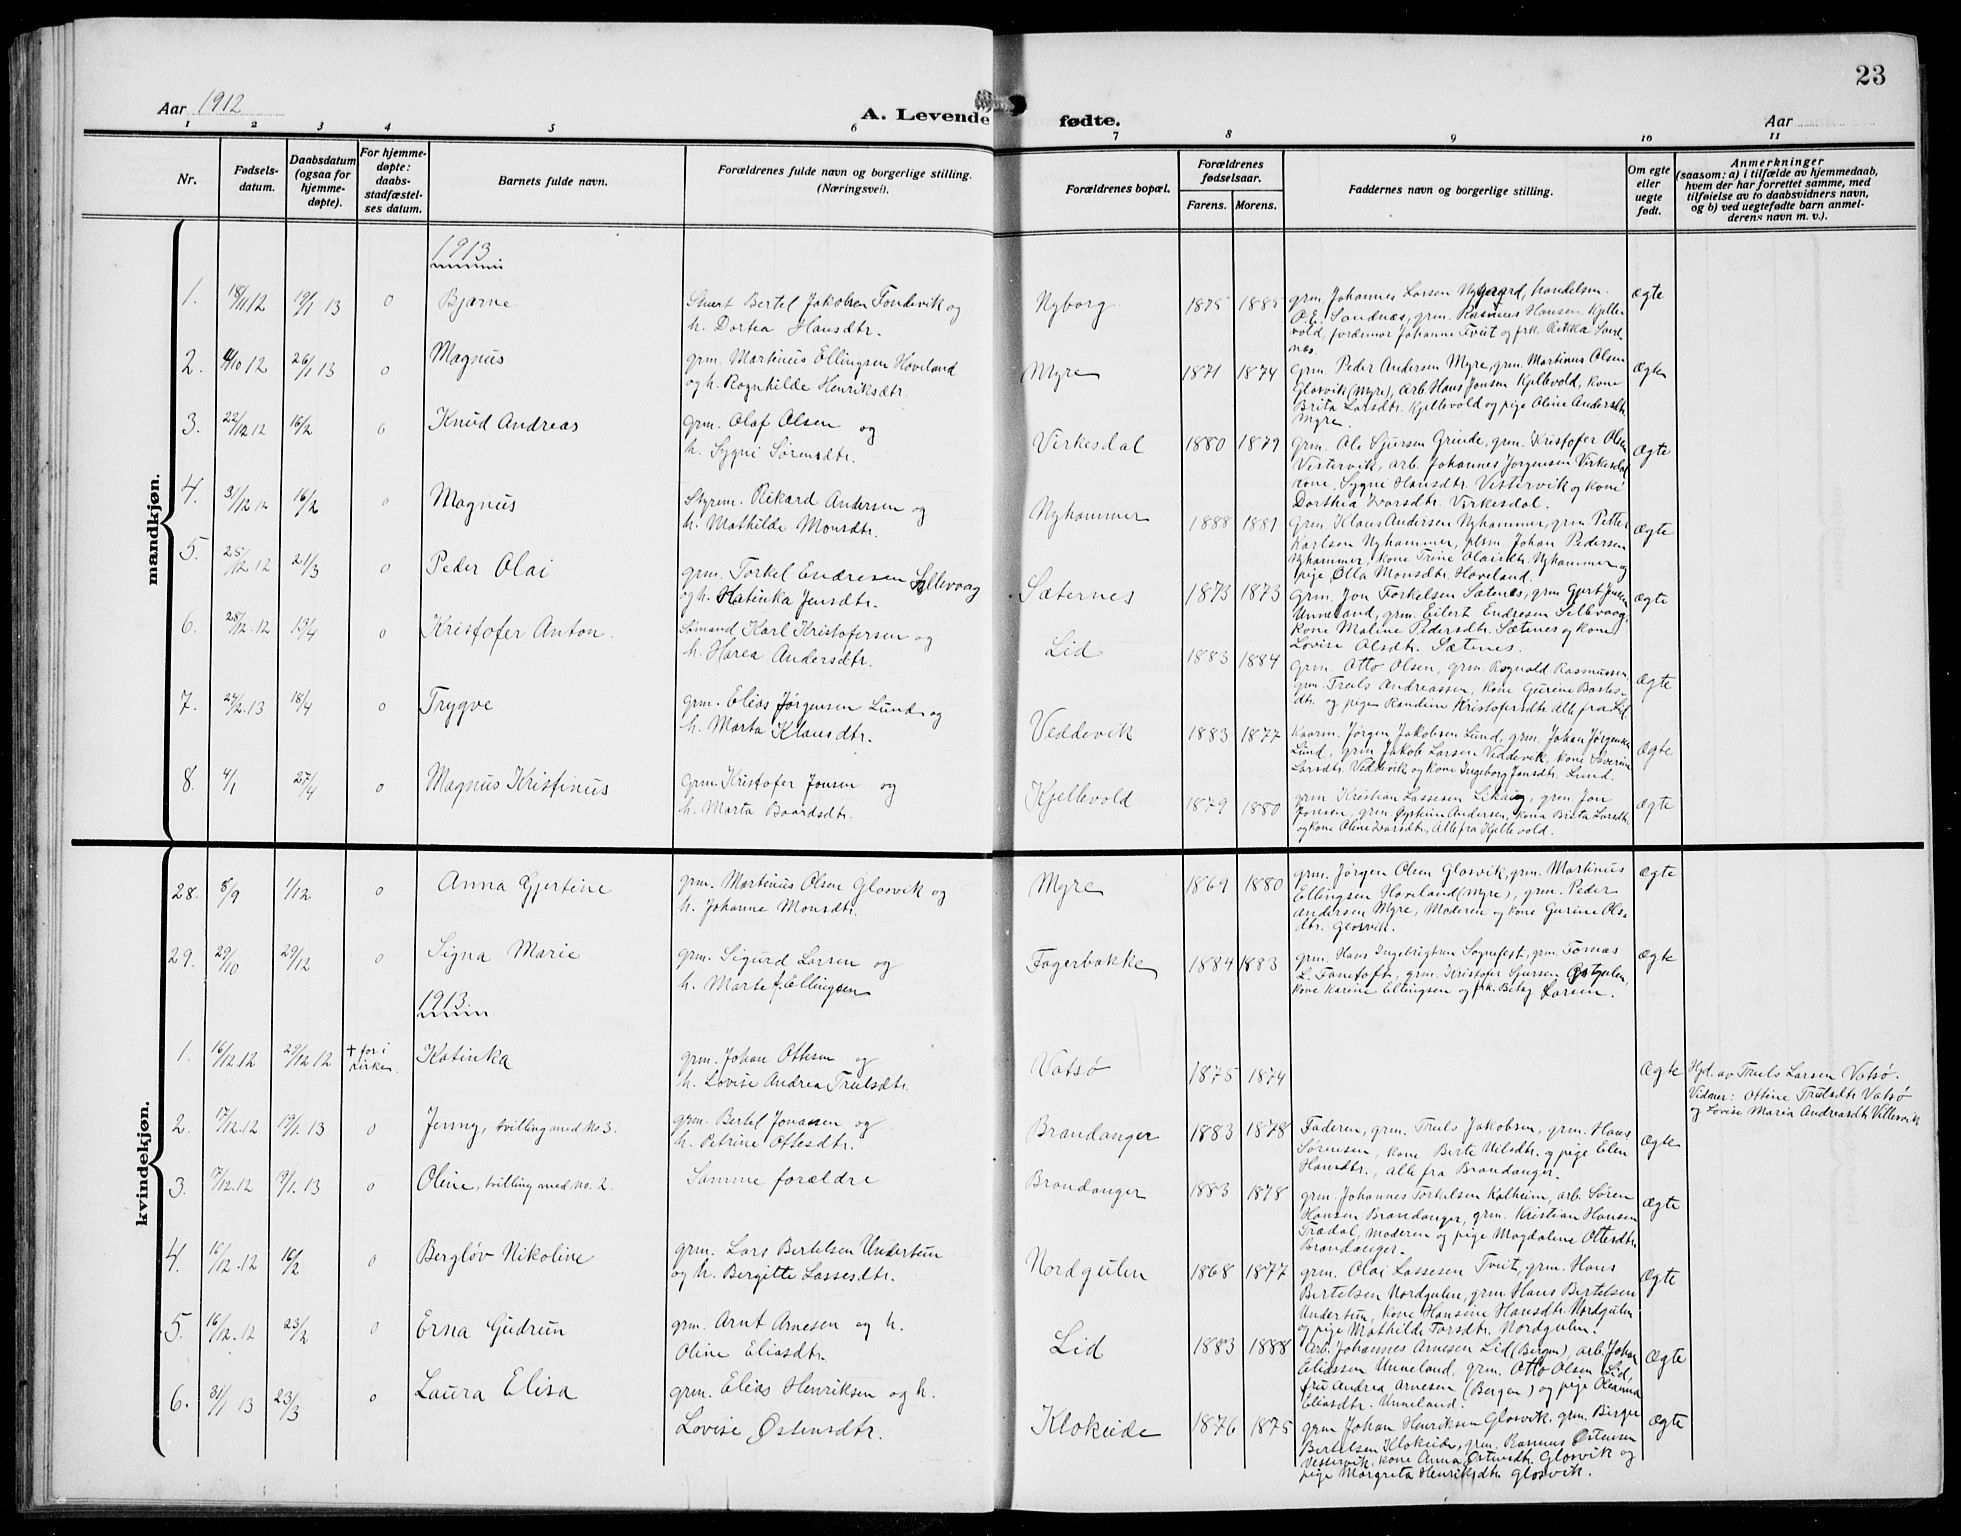 23
Aar 1912
A. Levende fødte.
Aar
1 2 3 4 5 6 7 8 9 10 11
Nr.
Fødsels-
datum.
Daabsdatum
(ogsaa for
hjemme-
døpte).
For hjemme-
døpte:
daabs-
stadfæstel-
ses datum.
Barnets fulde navn.
Forældrenes fulde navn og borgerlige stilling.
(Næringsvei).
Forældrenes bopæl.
Forældrenes
fødselsaar.
Farens. Morens.
Faddernes navn og borgerlige stilling.
Om egte
eller
uegte
født.
Anmerkninger
(saasom: a) i tilfælde av hjemmedaab,
hvem der har forrettet samme, med
tilføielse av to daabsvidners navn,
og b) ved uegtefødte barn anmel-
derens navn m. v.).
mandkjøn.
1913
1. 18/11 12 19/1 13 0 Bjarne
Bertel Jakobsen Tondevik og
h. Dortea Hansdtr.
Nyborg 1875 1885
grm. Johannes Larsen Nygaard, handelsm.
P. E. Sandnæs, grm. Rasmus Hansen Kjelle-
vold, jordemor Johanne Tveit og frk. Rikka Sand-
næs.
Ægte
2. 11/10 12 26/1 13 0 Magnus
grm. Martinus Ellingsen Hoveland
og h. Rognhilde Henriksdtr.
Myre 1871 1874
Grm. Peder Andersen Myre, grm. Martinus Olsen
Glosvik (Myre), arb. Hans Jonsen Kjellevold, kone
Brita Larsdtr. Kjellevold og pige Oline Andersdtr.
Myre.
Ægte
3. 22/12 12 16/2 0 Knud Andreas
grm. Olaf Olsen og
h. Sygni Sørensdtr.
Virkesdal 1880 1879
grm. Ole Sjursen Grinde, grm. Kristofer Olsen
Vestervik, arb. Johannes Jørgensen Virkesdal
kone Sygni Hansdtr. Vestervik og kone
Dorthea Ivarsdtr. Virkesdal.
Ægte
4. 31/12 12 16/2 0 Magnus
Styrm. Rikard Andersen og
h. Mathilde Monsdtr.
Nyhammer 1888 1881
Grm. Klaus Andersen Nyhammer, grm. Petter
Karlsen Nyhammer, plsm. Johan Pedersen
Nyhammer, kone Trine Olaisdtr. Nyhammer og
pige Olla Monsdtr. Hoveland.
Ægte
5. 25/12 12 21/3 0 Peder Olai
grm. Torkel Endresen Sellevaag
og h. Katinka Jensdtr.
Sæternes 1873 1873
Grm. Jon Torkelsen Sætenes, grm Gurt Jensen
Unneland, grm. Eilert Endresen Sellevaag,
kone Maline Pedersdtr. Sætenes og kone
Lovise Olsdtr. Sætenes.
Ægte
6. 28/12 12 19/4 0 Kristofer Anton.
Sømand Karl Kristofersen og
h. Harea Andersdtr.
Lid 1883 1884
Grm. Otto Olsen, grm. Rognald Rasmussen,
grm. Truls Andreassen, kone Gurine Bastes-
dtr. og pige Randine Kristofersdtr. alle fra Lid.
Ægte
7. 24/2 13 18/4 0 Trygve
grm. Elias Jørgensen Lund og
h. Marta Klausdtr.
Veddevik 1883 1877
Kaarm. Jørgen Jakobsen Lund, grm. Johan Jørgensen
Lund, grm Jakob Larsen Viddevik, kone Severine
Larsdtr. Veddevik og kone Ingeborg Jensdtr. Lund.
Ægte
8. 4/1 27/4 0 Magnus Kristinus
Grm. Kristofer Jonsen og
h. Marta Baardsdtr.
Kjellevold 1879 1880
grm. Kristian Lassesen Likaug, grm. Jon
Jonsen, grm. Øystein Andersen, kone Brita Larsdtr.
og kone Oline Ivarsdtr. Alle fra Kjellevold.
Ægte
kvindekjøn.
28. 8/9 1/12 0 Anna Gjertine
grm. Martinus Olsen Glosvik og
h. Johanne Monsdtr.
Myre 1869 1880
grm. Jørgen Olsen Glosvik, grm. Martinus
Ellingsen Hoveland (Myre), grm. Peder
Andersen Myre, Moderen og kone Gurine Ols-
dtr. Glosvik.
Ægte
29. 29/10 29/12 0 Signa Marie
grm. Sigurd Larsen og
h. Marte f. Ellingsen
Fagerbakke 1884 1883
grm. Hans Ingebrigtsen Sognefest, grm. Tomas
L. Tonetoft, grm. Kristofer Sjursen Østgulen,
kone Karine Ellingsen og frk. Betsy Larsen.
Ægte
1913.
1. 16/12 12 29/12 12 † før i
kirken. Katinka
grm. Johan Ottesen og
h. Lovise Andrea Trulsdtr.
Vatsø 1875 1874
Ægte
Hjd. av Truls Larsen Vatsø.
Vidner: Oline Trulsdtr. Vatsø
og Lovise Maria Andreasdtr. Villesvik
2. 17/12 12 19/1 13 0 Jenny, tvilling med No. 3.
grm. Bertel Jonassen og
h. Petrine Ottesdtr.
Brandanger 1883 1878
Faderen, grm. Truls Jakobsen, grm. Hans
Sørensen, kone Berte Nilsdtr. og pige Elen
Hansdtr., alle fra Brandanger.
Ægte
3. 17/12 12 19/1 13 0 Oline, tvilling med No. 2.
Samme forældre
Brandanger 1883 1878
grm. Johannes Torkelsen Kalheim, arb. Søren
Hansen Brandanger, grm. Kristian Hansen
Trædal, Moderen og pige Magdalene Ottesdtr.
Brandanger.
Ægte
4. 16/12 12 16/2 0 Bergløv Nikoline
grm. Lars Bertelsen Undertun
og h. Bergitte Lassesdtr.
Nordgulen 1868 1877
grm. Olai Lassesen Tveit, grm. Hans
Bertelsen Nordgulen, grm Hans Bertelsen
Undertun, kone Hansine Hansdtr. Nordgulen
og pige Mathilde Torsdtr. Nordgulen.
Ægte
5. 16/12 12 23/2 0 Erna Gudrun
grm. Arnt Arnesen og h.
Oline Eliasdtr.
Lid 1883 1888
Arb. Johannes Arnesen Lid (Bergen), arb. Johan
Eliassen Unneland, grm. Otto Olsen Lid,
fru Andrea Arnesen (Bergen) og pige Oleanna
Eliasdtr. Unneland.
Ægte
6. 31/1 13 23/3 0 Laura Elisa
grm. Elias Henriksen og h.
Lovise Østensdtr.
Klokeide 1876 1875
grm Johan Henriksen Glosvik, grm. Birger
Bertelsen Klokeide, grm. Rasmus Østensen
Vestervik, kone Anna Østensdtr. Glosvik og
pige Margreta Henriksdtr. Glosvik.
Ægte